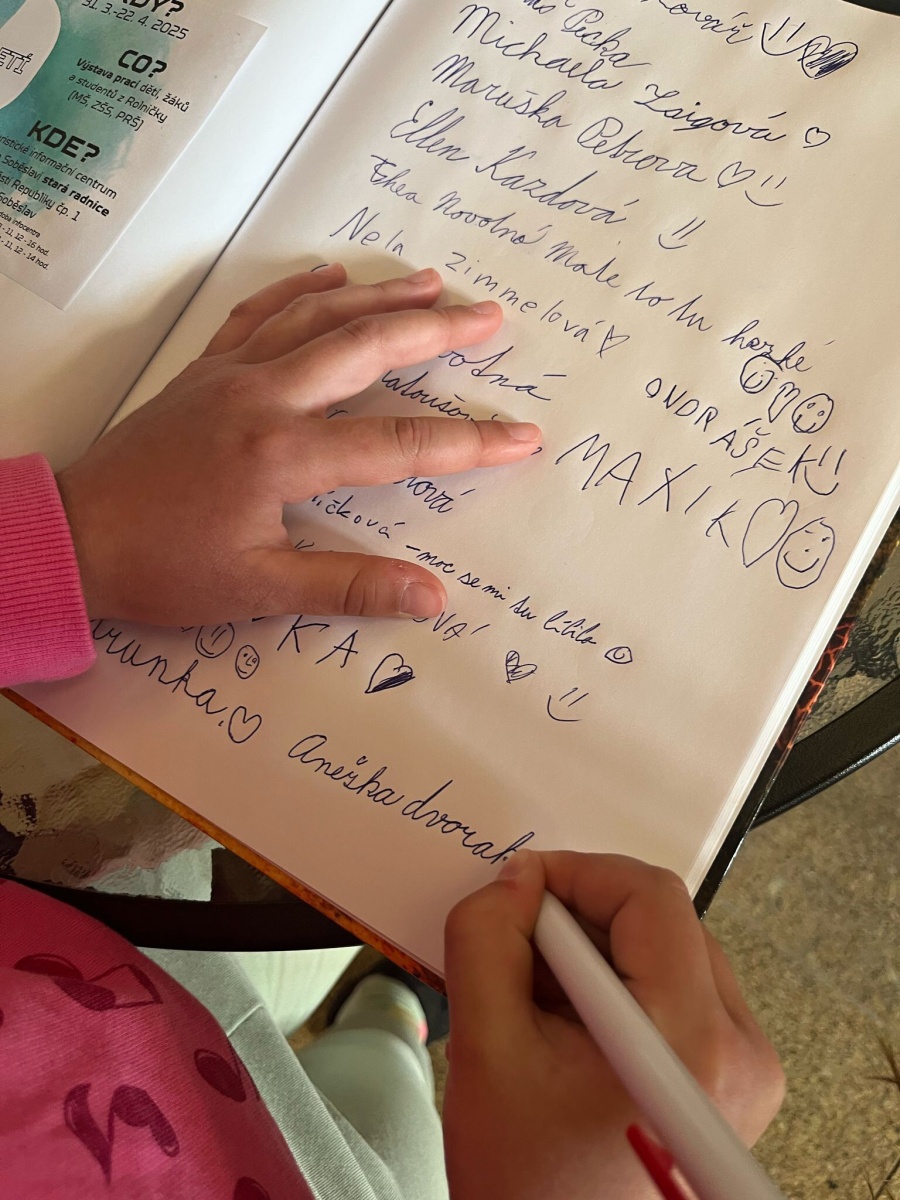 KDY?
31. 3.-22. 4. 2025
ETÍ
CO?
Výstava prací dětí, žáků
a studentů z Rolničky
(MŠ, ZŠS, PRŠ)
KDE?
informační centrum
Soběslavi stará radnice
Republiky čp. 1
Soběslav
infocentra
- 11, 12 - 16 hod.
- 11, 12 - 14 hod.
Pecka
Michaela Laigová
Maruška Petrova
Ellen Kazdová
Thea Novotná Máte to tu hezké
Nela Zimmelová
ONDRÁŠEK
MAXIK
-moc se mi tu líbilo
KA
Aneška dvorak